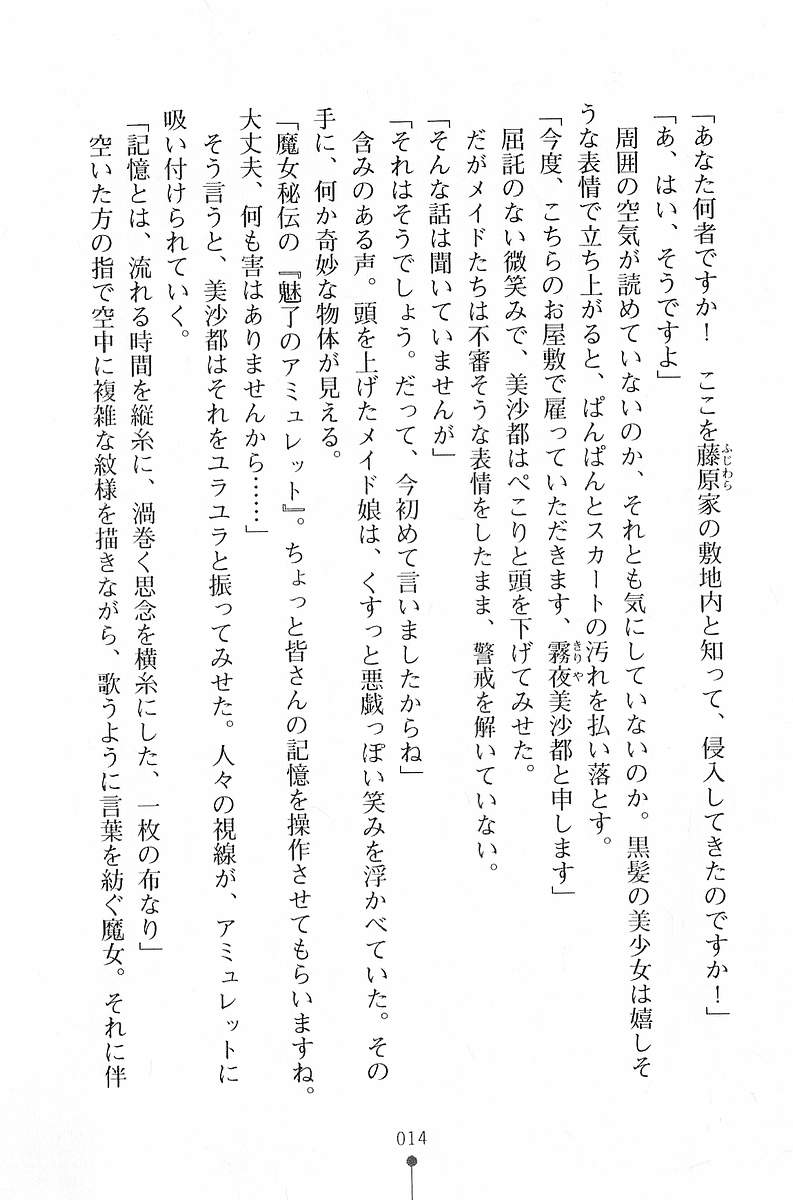 「あなた何者ですか！　ここを藤原家の敷地内と知って、侵入してきたのですか！」
「あ、はい、そうですよ」
　周囲の空気が読めていないのか、それとも気にしていないのか。黒髪の美少女は嬉しそ
うな表情で立ち上がると、ぱんぱんとスカートの汚れを払い落とす。
「今度、こちらのお屋敷で雇っていただきます、霧夜美沙都と申します」
　屈託のない微笑みで、美沙都はぺこりと頭を下げてみせた。
　だがメイドたちは不審そうな表情をしたまま、警戒を解いていない。
「そんな話は聞いていませんが」
「それはそうでしょう。だって、今初めて言いましたからね」
　含みのある声。頭を上げたメイド娘は、くすっと悪戯っぽい笑みを浮かべていた。その
手に、何か奇妙な物体が見える。
「魔女秘伝の『魅了のアミュレット』。ちょっと皆さんの記憶を操作させてもらいますね。
大丈夫、何も害はありませんから……」
　そう言うと、美沙都はそれをユラユラと振ってみせた。人々の視線が、アミュレットに
吸い付けられていく。
「記憶とは、流れる時間を縦糸に、渦巻く思念を横糸にした、一枚の布なり」
　空いた方の指で空中に複雑な紋様を描きながら、歌うように言葉を紡ぐ魔女。それに伴
ふじわら
きりや
014